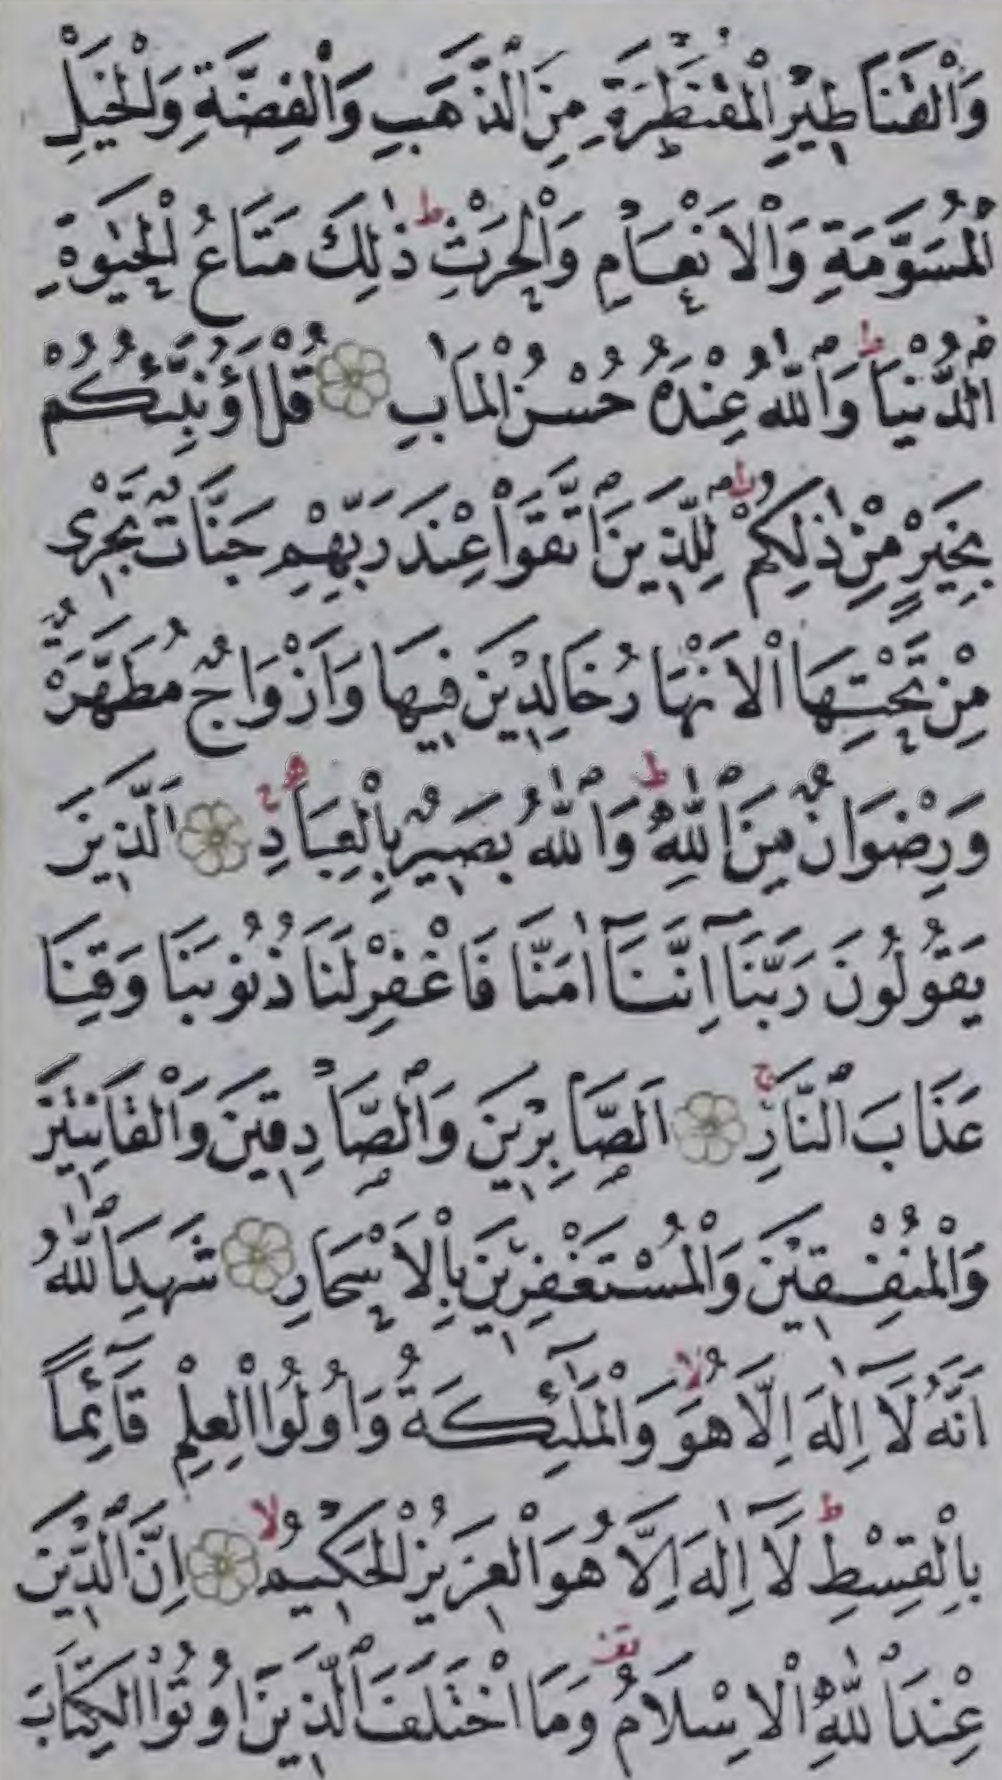 وَالْقَنَاطِيرِ الْمُقَنْطَرَةِ مِنَ الذَّهَبِ وَالْفِضَّةِ وَالْخَيْلِ
الْمُسَوَّمَةِ وَالْاَنْعَامِ وَالْحَرْثِ ط ذٰلِكَ مَتَاعُ الْحَيٰوةِ
الدُّنْيَا ط وَاللّٰهُ عِنْدَهُ حُسْنُ الْمَاٰبِ قُلْ اَؤُنَبِّئُكُمْ
بِخَيْرٍ مِنْ ذٰلِكُمْ ط لِلَّذِينَ اتَّقَوْا عِنْدَ رَبِّهِمْ جَنَّاتٌ تَجْرِى
مِنْ تَحْتِهَا الْاَنْهَارُ خَالِدِينَ فِيهَا وَاَزْوَاجٌ مُطَهَّرَةٌ
وَرِضْوَانٌ مِنَ اللّٰهِ ط وَاللّٰهُ بَصِيرٌ بِالْعِبَادِ ج اَلَّذِينَ
يَقُولُونَ رَبَّنَٓا اِنَّنَٓا اٰمَنَّا فَاغْفِرْ لَنَا ذُنُوبَنَا وَقِنَا
عَذَابَ النَّارِ ج اَلصَّابِرِينَ وَالصَّادِقِينَ وَالْقَانِتِينَ
وَالْمُنْفِقِينَ وَالْمُسْتَغْفِرِينَ بِالْاَسْحَارِ شَهِدَ اللّٰهُ
اَنَّهُ لَٓا اِلٰهَ اِلَّا هُوَ لا وَالْمَلٰٓئِكَةُ وَاُولُوا الْعِلْمِ قَٓائِمًا
بِالْقِسْطِ ط لَٓا اِلٰهَ اِلَّا هُوَ الْعَزِيزُ الْحَكِيمُ لا اِنَّ الدِّينَ
عِنْدَ اللّٰهِ الْاِسْلَامُ قف وَمَا اخْتَلَفَ الَّذِينَ اُوتُوا الْكِتَابَ